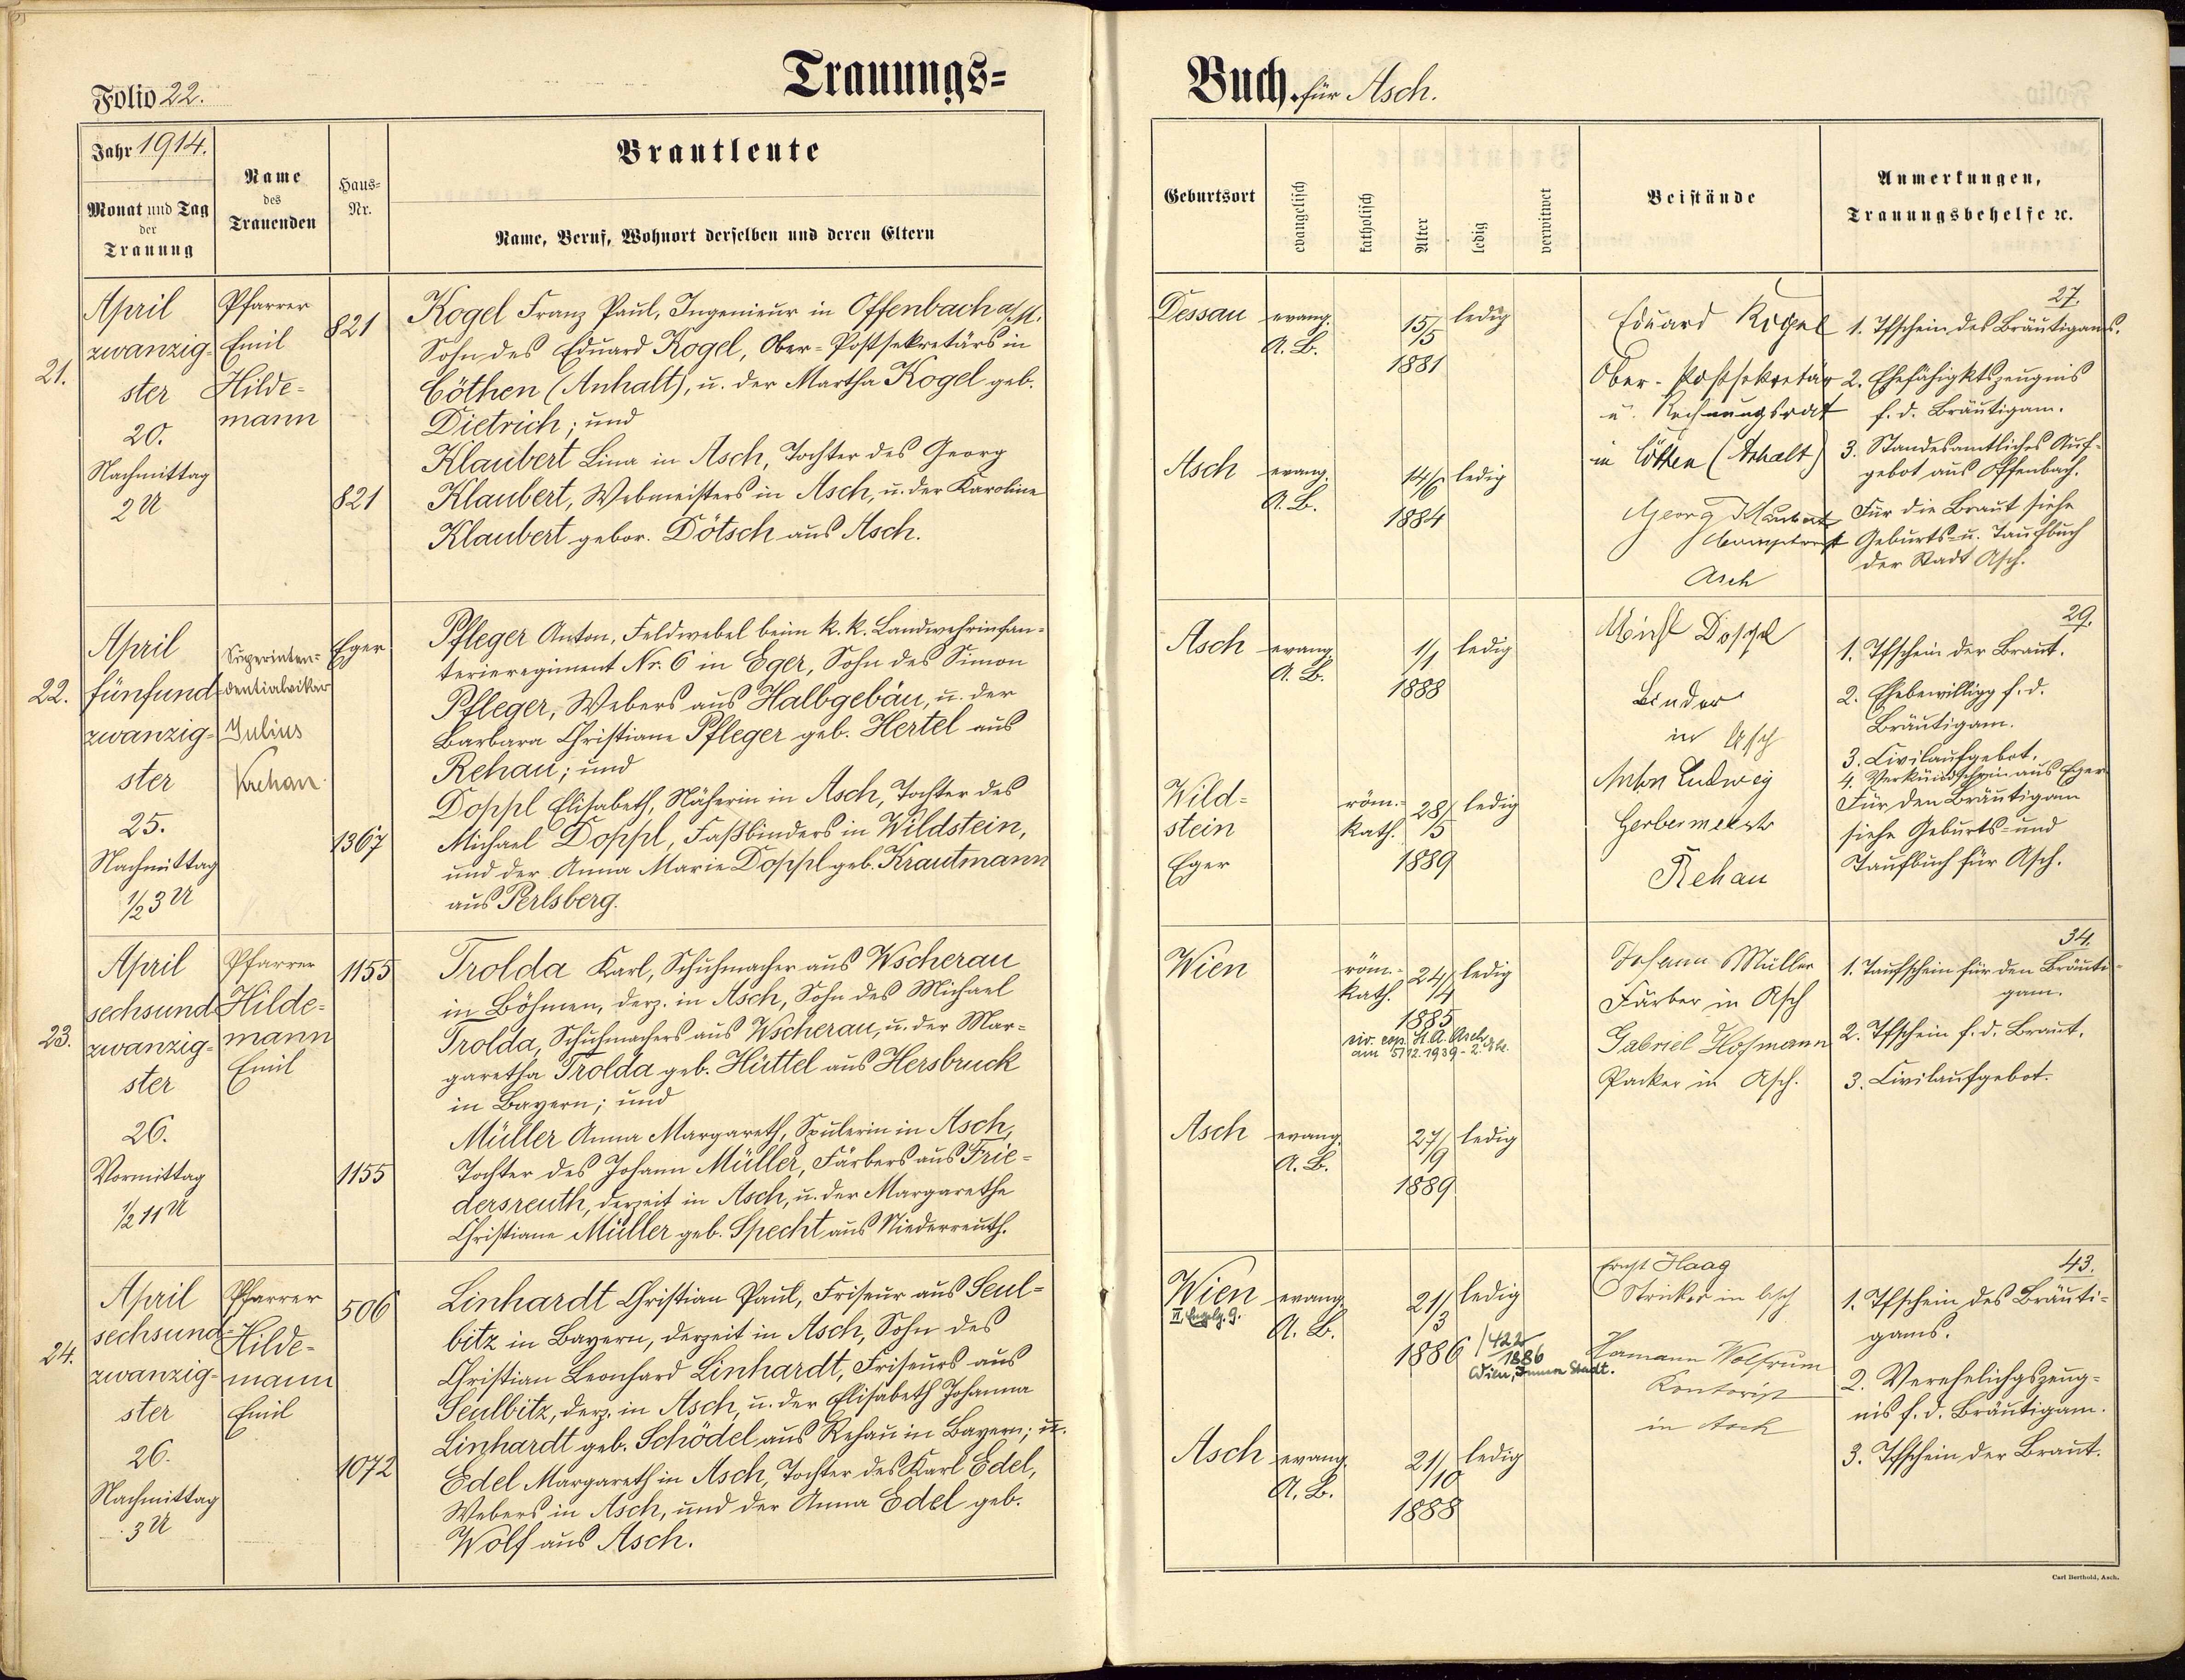 Trauungs=
Folio 22.
Jahr 1914.
Monat und Tag
der
Trauung
Name
des
Trauenden
Haus=
Nr.
Brautleute
Name, Beruf, Wohnort derselben und deren Eltern
21.
April
zwanzig=
ster
20.
Nachmittag
2 U
Pfarrer
Emil
Hilde=
mann
821
821
Kogel Franz Paul, Ingenieur in Offenbach a/M.
Sohn des Eduard Kogel, Ober-Postsekretärs in
Cöthen (Anhalt), u. der Martha Kogel geb.
Dietrich; und
Klaubert Lina in Asch, Tochter des Georg
Klaubert, Webmeisters in Asch, u. der Karoline
Klaubert gebor. Dötsch aus Asch.
22.
April
fünfund=
zwanzig=
ster
25.
Nachmittag
1/2 3 U
Superinten=
dentialvikar
Julius
Krehan
Eger
1367
Pfleger Anton, Feldwebel beim k. k. Landwehrinfan=
terieregiment Nr. 6 in Eger, Sohn des Simon
Pfleger, Webers aus Halbgebäu, u. der
Barbara Christiane Pfleger geb. Hertel aus
Rehau; und
Doppl Elisabeth, Näherin in Asch, Tochter des
Michael Doppl, Faßbinders in Wildstein,
und der Anna Marie Doppl geb. Krautmann
aus Perlsberg.
23.
April
sechsund
zwanzig=
ster
26.
Vormittag
1/2 11 U
Pfarrer
Hilde=
mann
Emil
1155
1155
Trolda Karl, Schuhmacher aus Wscherau
in Böhmen, derz. in Asch, Sohn des Michael
Trolda, Schuhmachers aus Wscherau, u. der Mar=
garetha Trolda geb. Hüttel aus Hersbruck
in Bayern; und
Müller Anna Margareth, Spulerin in Asch,
Tochter des Johann Müller, Färbers aus Frie=
dersreuth, derzeit in Asch, u. der Margarethe
Christiane Müller geb. Specht aus Niederreuth.
24.
April
sechsund=
zwanzig=
ster
26.
Nachmittag
3 U
Pfarrer
Hilde=
mann
Emil
506
1072
Linhardt Christian Paul, Friseur aus Seul=
bitz in Bayern, derzeit in Asch, Sohn des
Christian Leonhard Linhardt, Friseurs aus
Seulbitz, derz. in Asch, u. der Elisabeth Johanna
Linhardt geb. Schödel aus Rehau in Bayern; u.
Edel Margareth in Asch, Tochter des Karl Edel,
Webers in Asch, und der Anna Edel geb.
Wolf aus Asch.
Buch für Asch.
Geburtsort
evangelisch
katholisch
Alter
ledig
verwitwet
Beistände
Anmerkungen,
Trauungsbehelfe ꝛc.
Dessau
evang.
A. B.
15/5
1881
ledig
Asch
evang.
A. B.
14/6
1884
ledig
Eduard Kogel
Ober-Postsekretär
u. Rechnungsrat
in Cöthen (Anhalt)
Georg Klaubert
Asch
27.
1. Tfschein des Bräutigams.
2. Ehefähigktszeugnis
f. d. Bräutigam.
3. Standesamtliches Auf=
gebot aus Offenbach.
Für die Braut siehe
Geburts= u. Taufbuch
der Stadt Asch.
Asch
evang.
A. B.
1/1
1888
ledig
Wild=
stein
Eger
röm.=
kath.
28/5
1889
ledig
Michl Doppl
Binder
in Asch
Anton Ludwig
Gerbermeister
Rehau
29.
1. Tfschein der Braut.
2. Ehebewilligg f. d.
Bräutigam.
3. Civilaufgebot.
4. Verkündschein aus Eger
Für den Bräutigam
siehe Geburts= und
Taufbuch für Asch.
Wien
röm.=
kath.
24/4
1885
ledig
civ. cop. St. A. Asch
am 5/12. 1939 -
Asch
evang.
A. B.
27/9
1889
ledig
Johann Müller
Färber in Asch
Gabriel Hofmann
Packer in Asch.
34.
1. Taufschein für den Bräuti=
gam.
2. Tfschein f. d. Braut.
3. Civilaufgebot.
Wien
evang.
A. B.
21/3
1886
ledig
1422/1886
Wien, Innere Stadt.
Asch
evang.
A. B.
21/10
1888
ledig
Ernst Haag
Stricker in Asch
Hermann Wolfrum
Kontorist
in Asch
43.
1. Tfschein des Bräuti=
gams.
2. Verehelichgszeug=
nis f. d. Bräutigam.
3. Tfschein der Braut.
Carl Berthold, Asch.